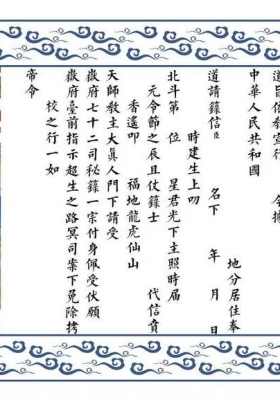 道旨依教宣行 今據
中華人民共和國
地分居住奉
道請籙信臣 名下 年 月 日
時建生上叨
北斗第 位 星君光下主照時屆
元令節之辰且仗籙士 代信賫
香遙叩 福地龍虎仙山
天師教主大眞人門下請受
嶽府七十二司秘籙一宗付身佩受伏願
嶽府臺前指示超生之路冥司案下免除拷
校之行一如
帝令